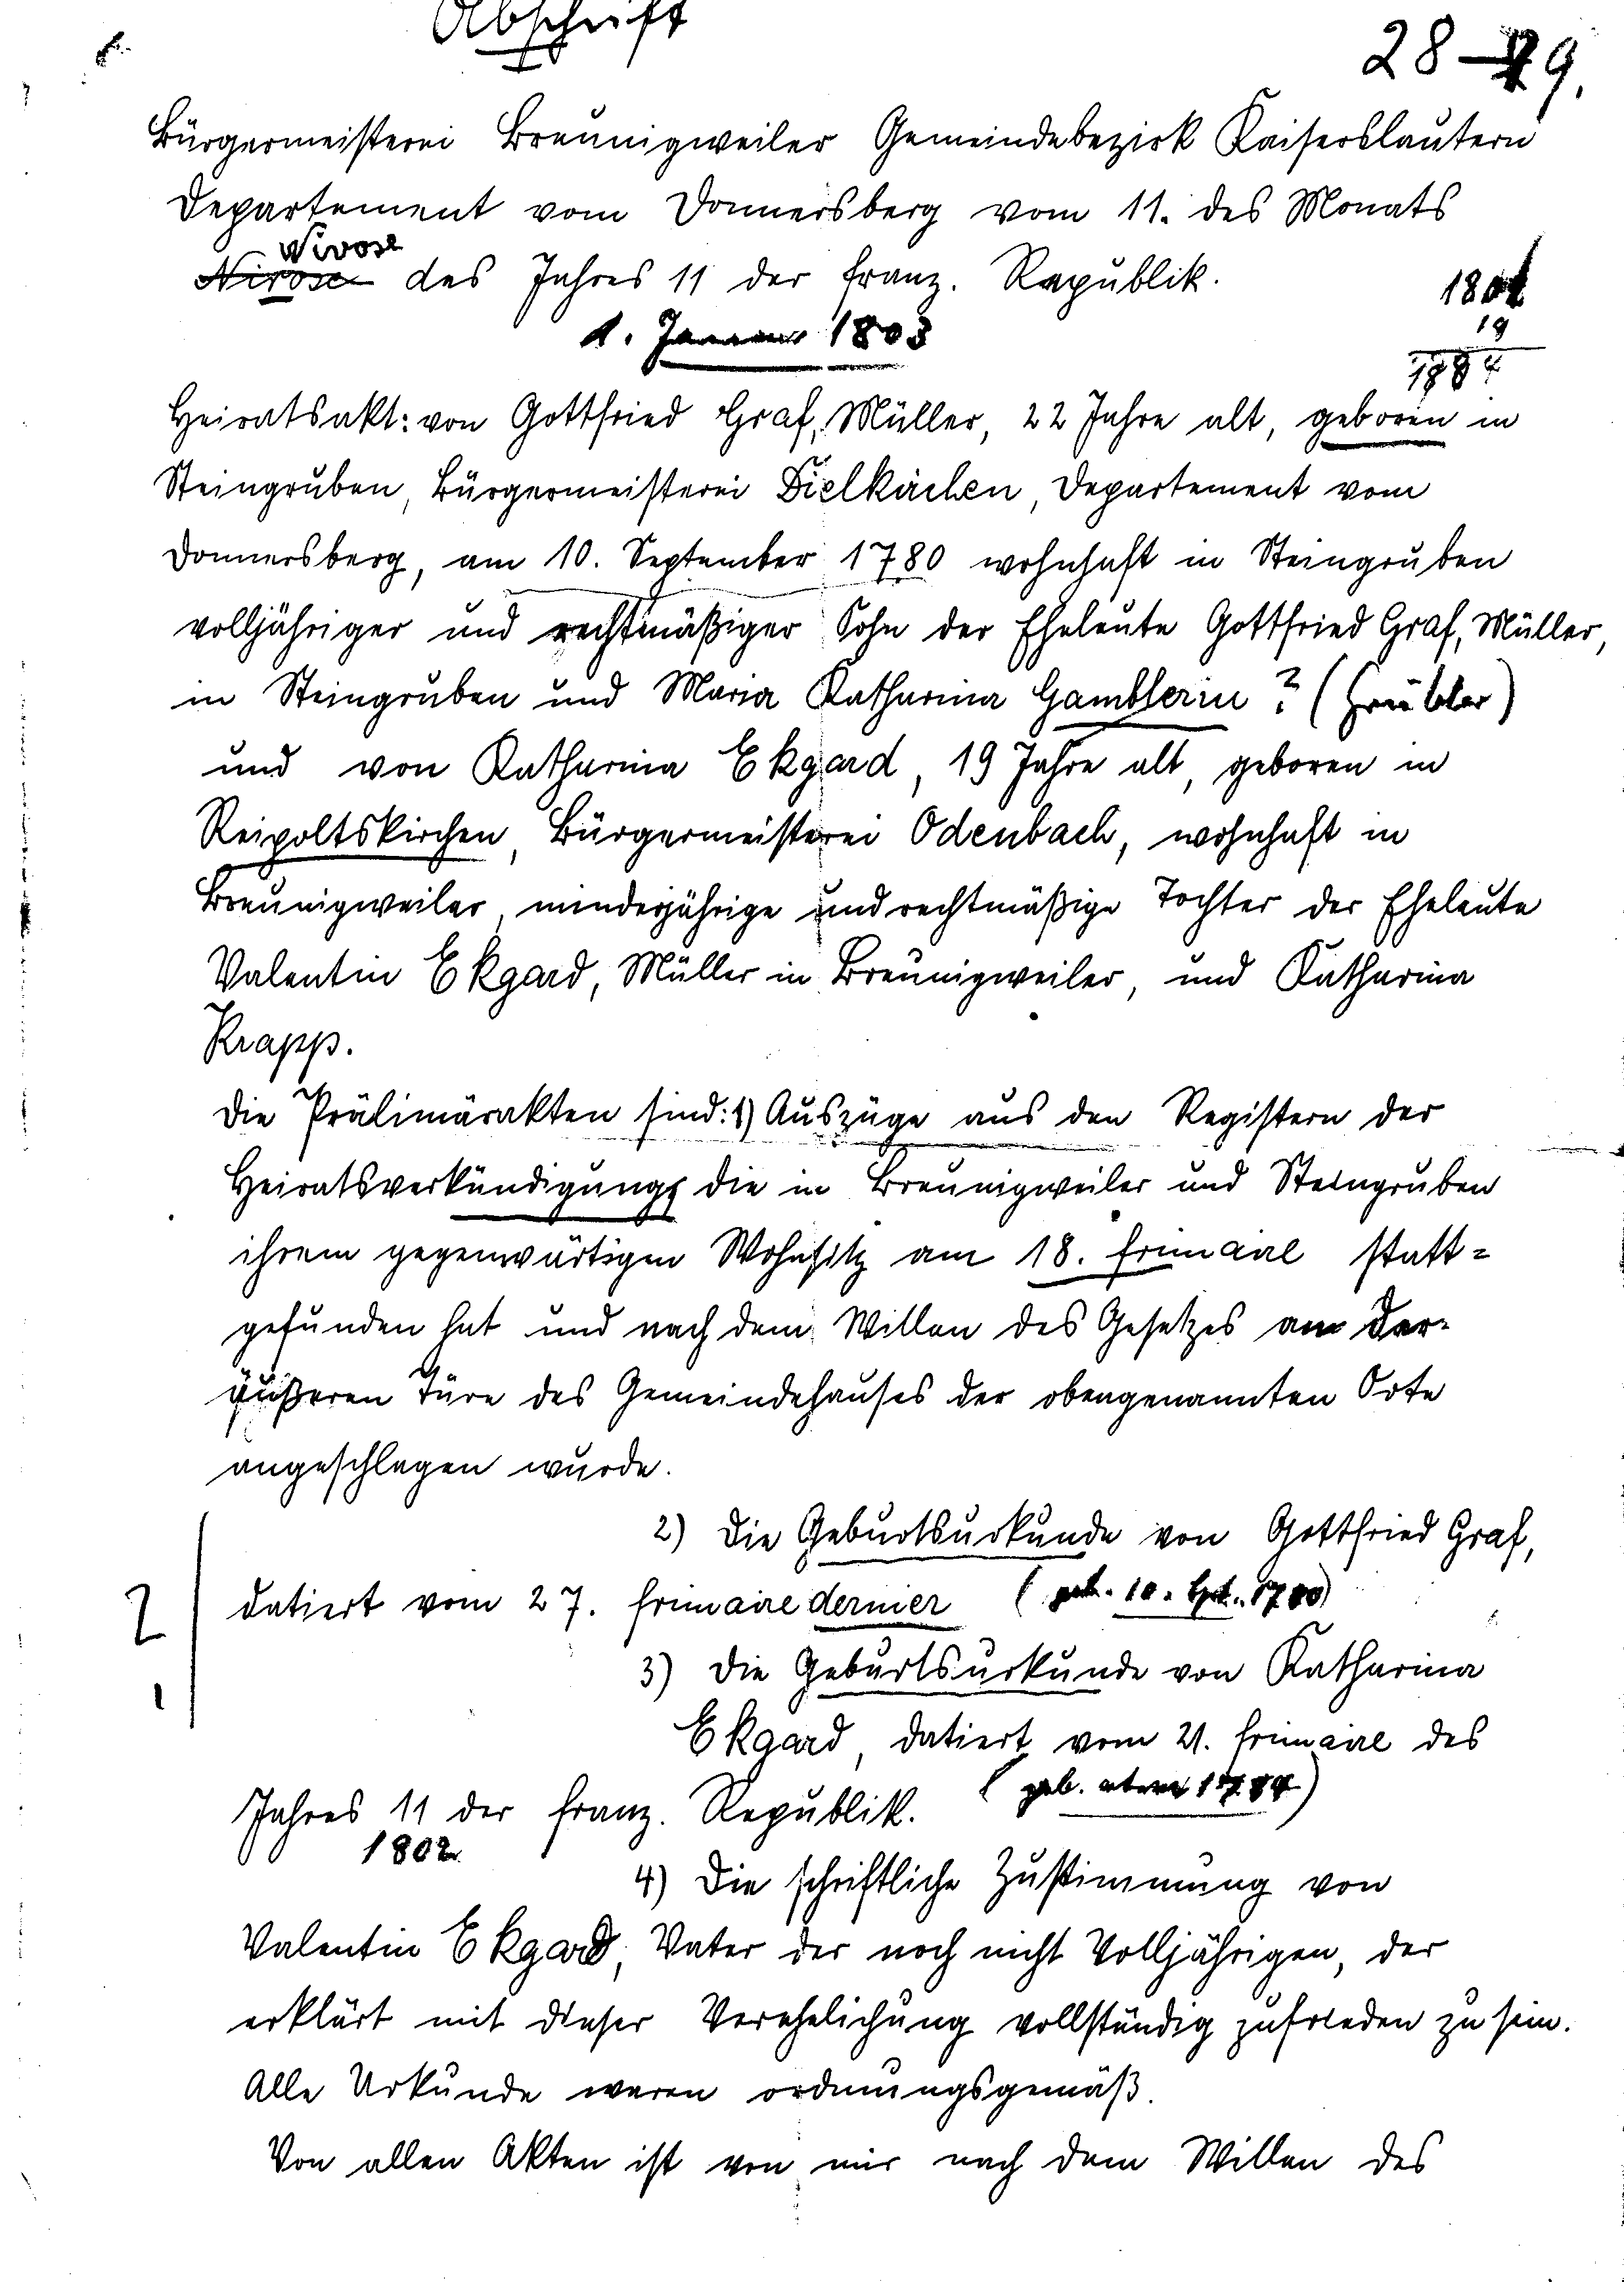 Abschrift
28–29.
Bürgermeisterei Breunigweiler Gemeindebezirk Kaiserslautern
Departement vom Donnersberg vom 11. des Monats
Nivose
Nirose des Jahres 11 der franz. Republik.
1. Januar 1803
19
Heiratsakt: von Gottfried Graf, Müller, 22 Jahre alt, geboren in
Steingruben, Bürgermeisterei Dielkirchen, Departement vom
Donnersberg, am 10. September 1780 wohnhaft in Steingruben
volljähriger und rechtmäßiger Sohn der Eheleute Gottfried Graf, Müller,
in Steingruben und Maria Katharina Gamblerin ? (Grübler)
und von Katharina Ekgard, 19 Jahre alt, geboren in
Reipoltskirchen, Bürgermeisterei Odenbach, wohnhaft in
Breunigweiler, minderjährige und rechtmäßige Tochter der Eheleute
Valentin Ekgard, Müller in Breunigweiler, und Katharina
Krapp.
Die Prälimärakten sind: 1) Auszüge aus den Registern der
Heiratsverkündigung, die in Breunigweiler und Steingruben
ihrem gegenwärtigen Wohnsitz am 18. frimaire statt=
gefunden hat und nach dem Willen des Gesetzes an der
äußeren Türe des Gemeindehauses der obengenannten Orte
angeschlagen wurde.
2) Die Geburtsurkunde von Gottfried Graf,
datiert vom 27. frimaire dernier (geb. 10. Spt. 1780)
3) Die Geburtsurkunde von Katharina
Ekgard, datiert vom 21. frimaire des
Jahres 11 der franz. Republik. (geb. etwa 1784)
1802
4) Die schriftliche Zustimmung von
Valentin Ekgard, Vater der noch nicht Volljährigen, der
erklärt mit dieser Verehelichung vollständig zufrieden zu sein.
Alle Urkunde waren ordnungsgemäß.
Von allen Akten ist von mir nach dem Willen des